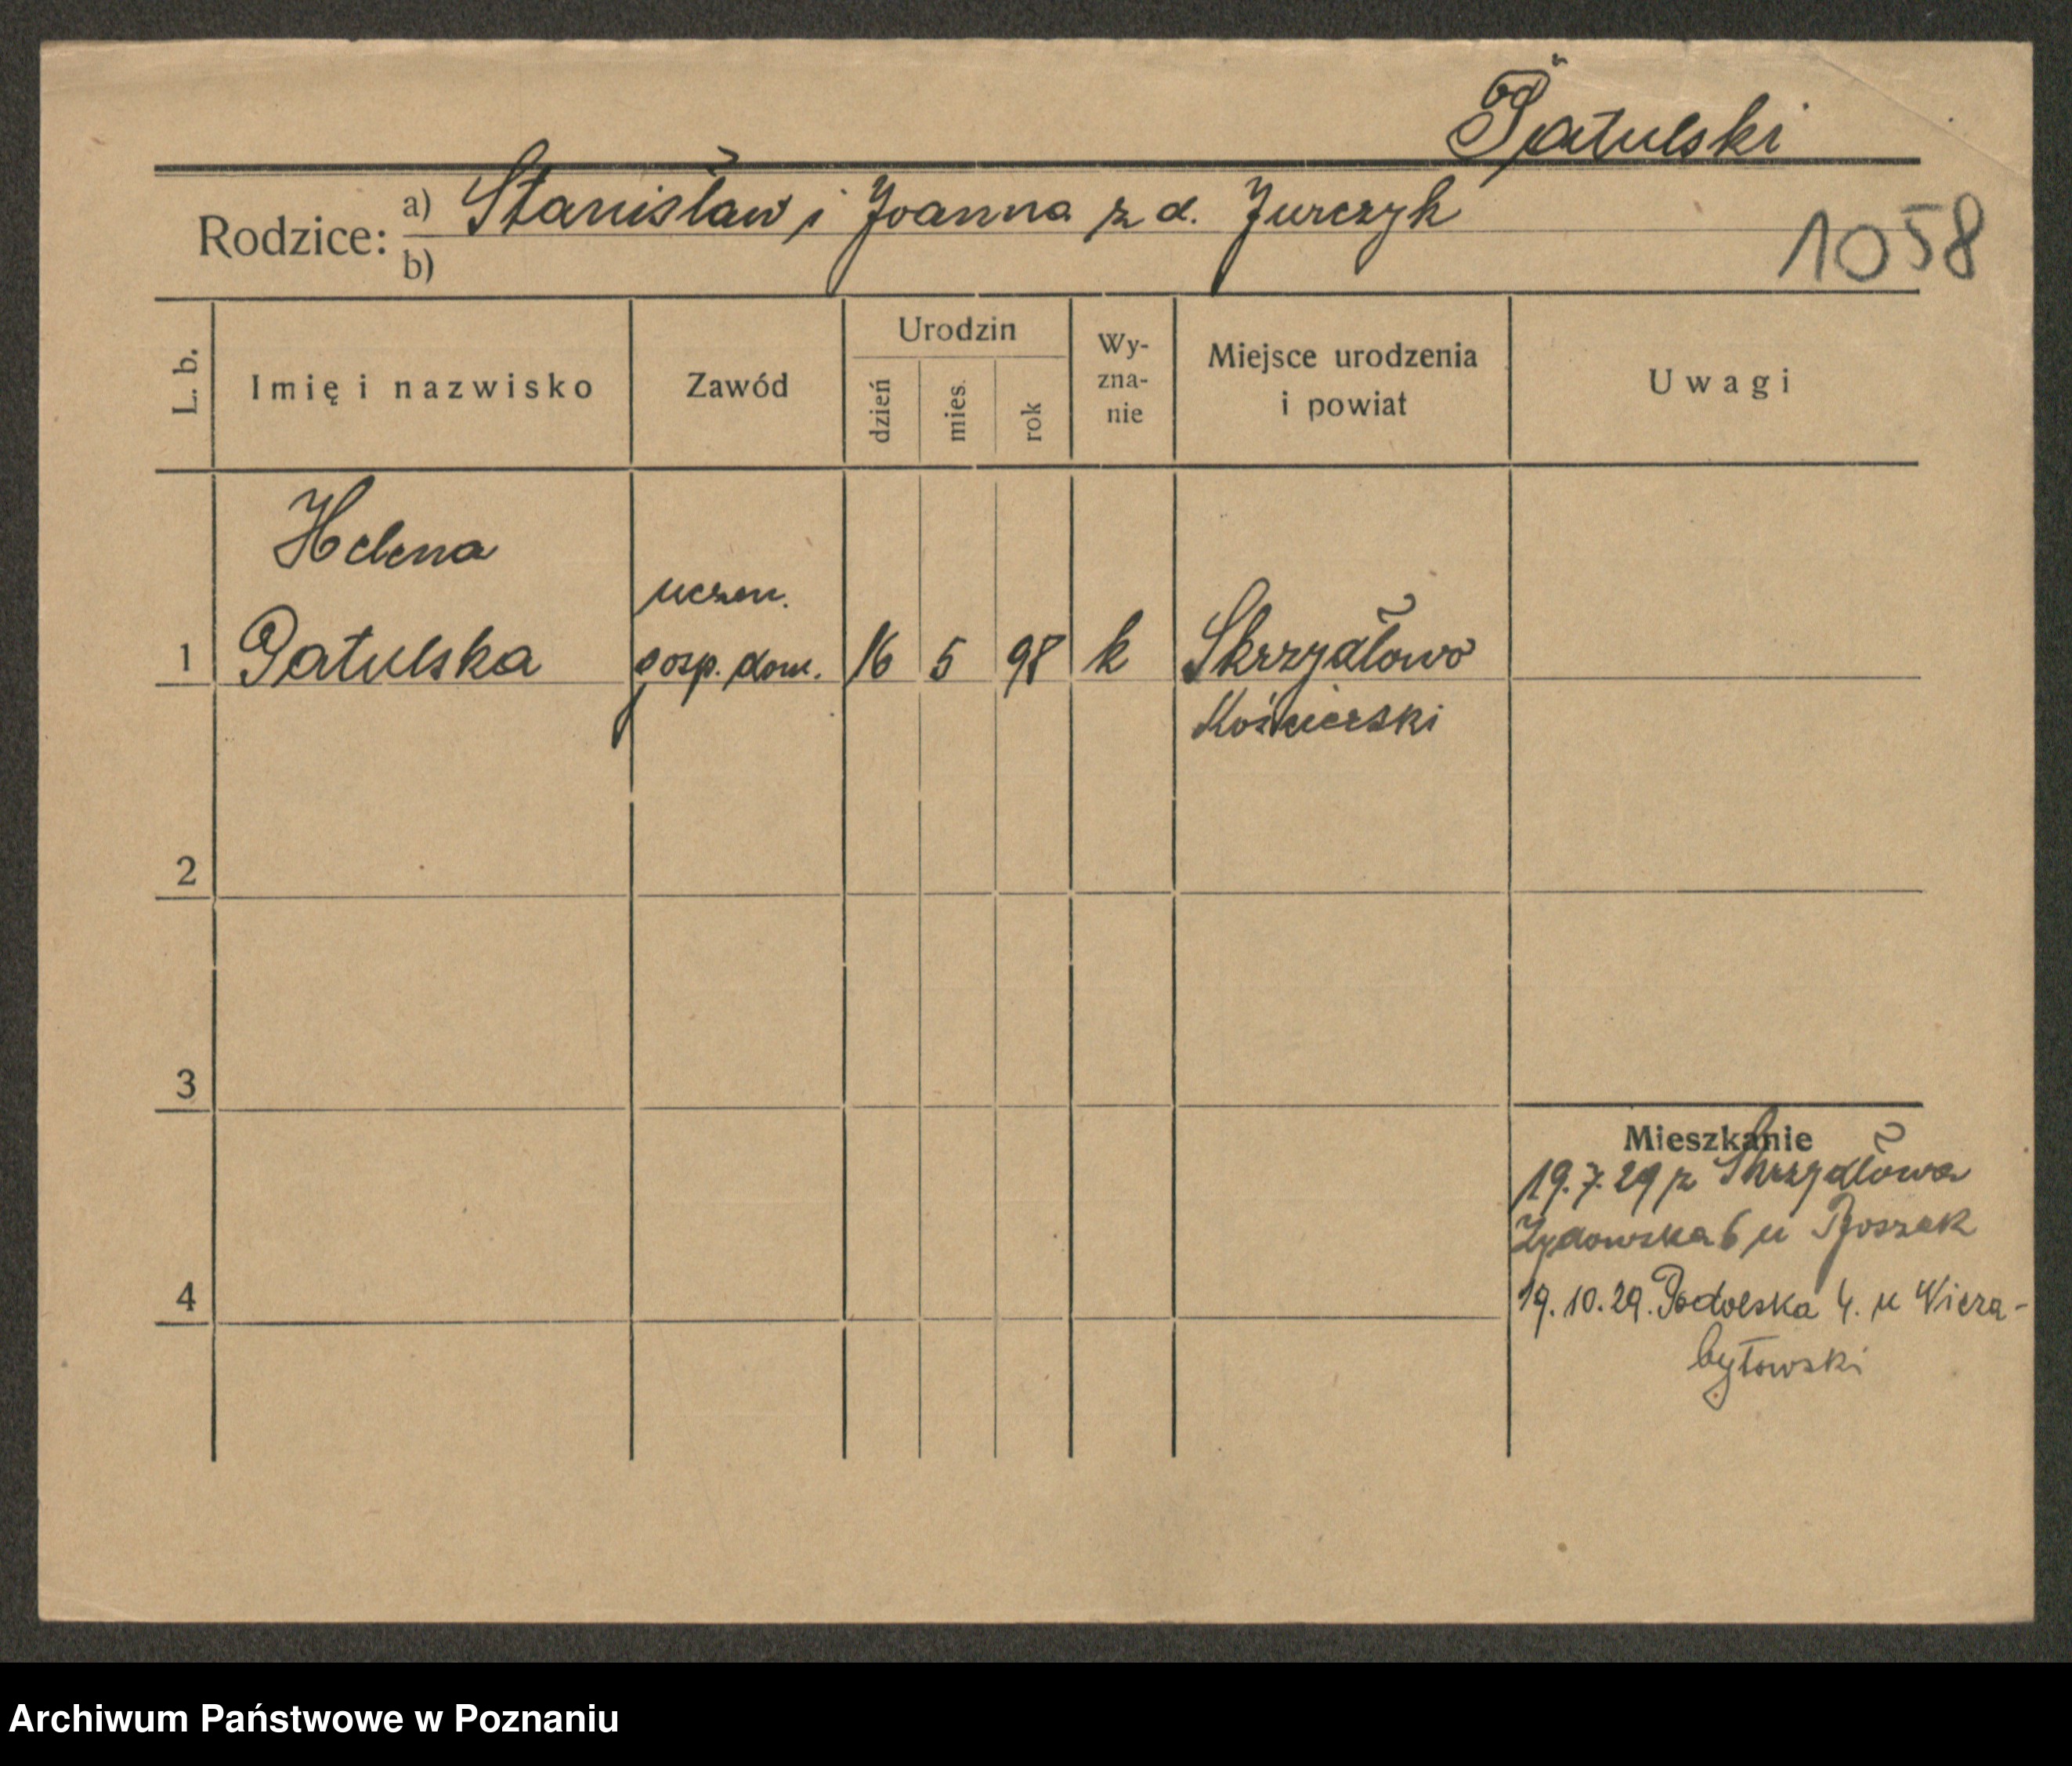 Patulski
Rodzice: a) Stanisław i Joanna z d. Jurczyk
b)
1058
L. b.
Imię i nazwisko
Zawód
Urodzin
dzień
mies.
rok
Wy-
zna-
nie
Miejsce urodzenia
i powiat
Uwagi
Helena
uczen.
1 Patulska gosp. dom. 16 5 98 k Skrzydłowo
Kościerski
2
3
Mieszkanie
19.7.29 z Skrzydłowa
Żydowska 6 u
4
19.10.29. Podolska 4. u Wierz-
bytowski
Archiwum Państwowe w Poznaniu